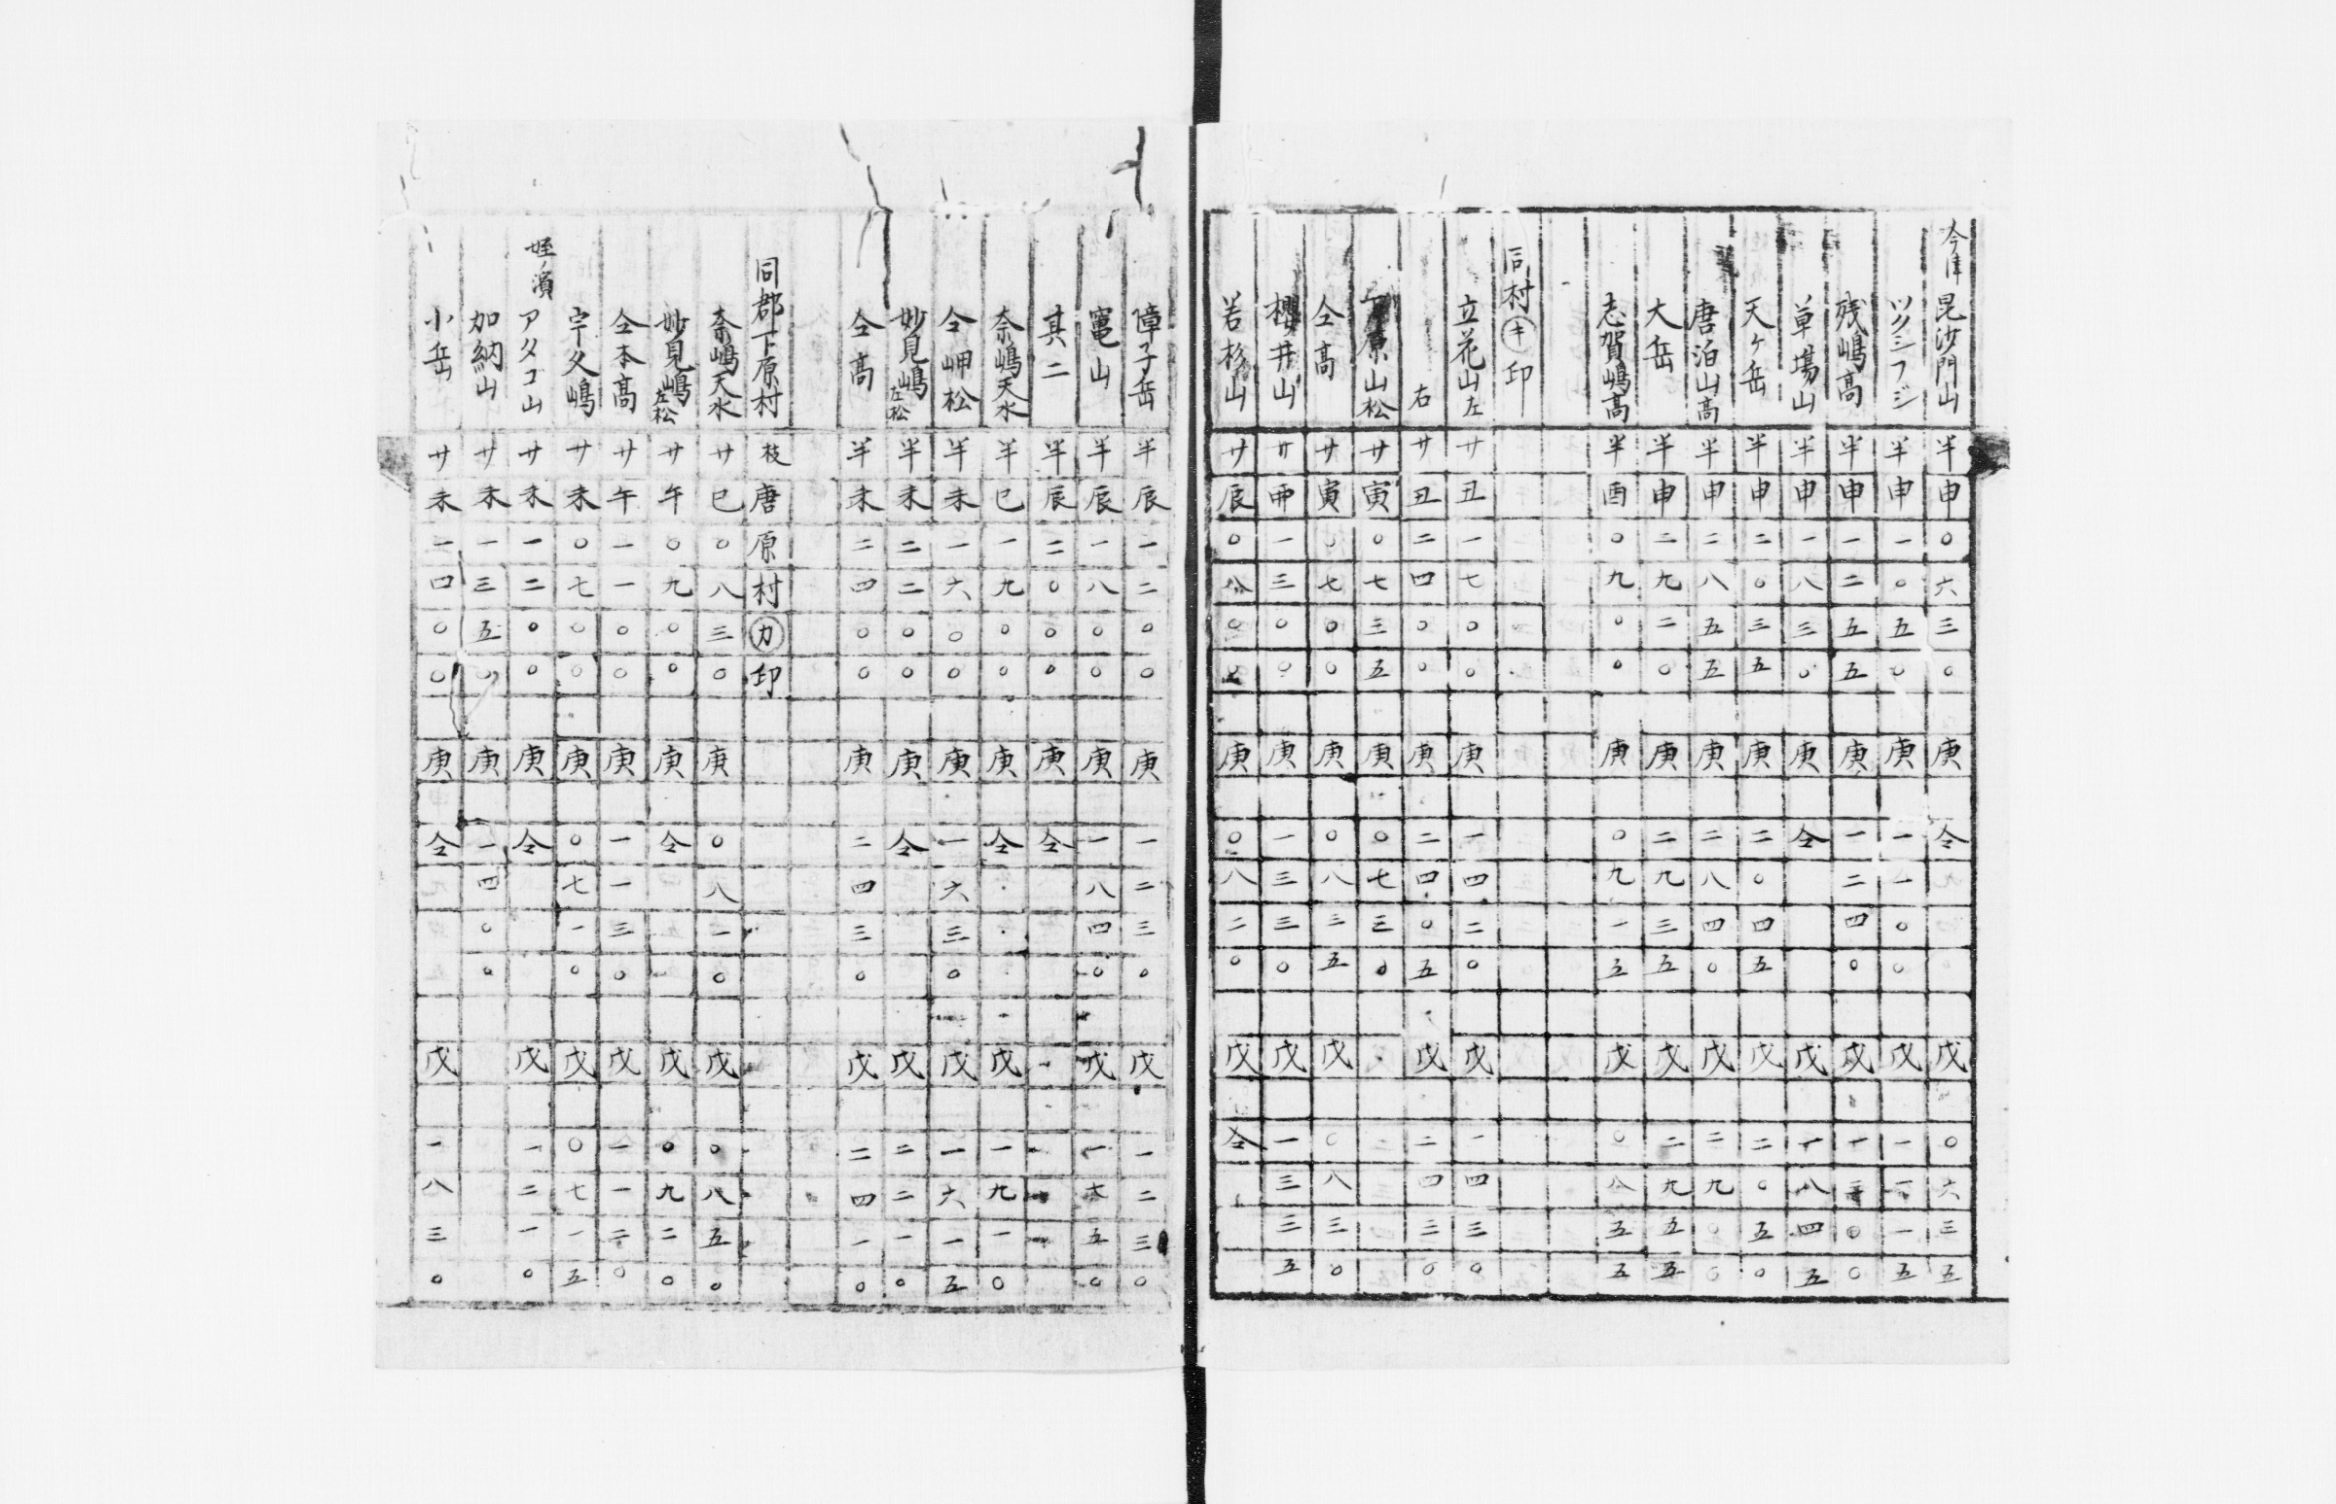 今津 昆沙門山 半 申 〇 六 三 〇 庚 仝 戊 〇 六 三 五
ツクシフジ 半 申 一 〇 五 〇 庚 一 一 〇 〇 戊 一 一 一 五
残嶋高 半 申 一 二 五 五 庚 一 二 四 〇 戊 一 〇 〇
草場山 半 申 一 八 三 〇 庚 仝 戊 一 八 四 五
天ヶ岳 半 申 二 〇 三 五 庚 二 〇 四 五 戊 二 〇 五 〇
唐泊山高 半 申 二 八 五 五 庚 二 八 四 〇 戊 二 九 〇 〇
大岳 半 申 二 九 二 〇 庚 二 九 三 五 戊 二 九 五 五
志賀嶋高 半 酉 〇 九 〇 〇 庚 〇 九 一 五 戊 〇 八 五 五
同村 キ 印
立花山左 廿 丑 一 七 〇 〇 庚 一 四 二 〇 戊 一 四 三 〇
右 廿 丑 二 四 〇 〇 庚 二 四 〇 五 戊 二 四 三 〇
原山松 廿 寅 〇 七 三 五 庚 〇 七 三 〇
仝高 廿 寅 〇 七 〇 〇 庚 〇 八 三 五 戊 〇 八 三 〇
櫻井山 廿 卯 一 三 〇 〇 庚 一 三 三 〇 戊 一 三 三 五
若杉山 廿 辰 〇 八 〇 〇 庚 〇 八 二 〇 戊 仝
障子岳 半 辰 一 二 〇 〇 庚 一 二 三 〇 戊 一 二 三 〇
竃山 半 辰 一 八 〇 〇 庚 一 八 四 〇 戊 一 五 〇
其二 半 辰 二 〇 〇 〇 庚 仝
奈嶋天水 半 巳 一 九 〇 〇 庚 仝 戊 一 九 一 〇
仝岬松 半 未 一 六 〇 〇 庚 一 六 三 〇 戊 一 六 一 五
妙見嶋左松 半 未 二 二 〇 〇 庚 仝 戊 二 二 一 〇
仝高 半 未 二 四 〇 〇 庚 二 四 三 〇 戊 二 四 一 〇
同郡下原村 枝 唐 原 村 カ 印
奈嶋天水 廿 巳 〇 八 三 〇 庚 〇 八 一 〇 戊 〇 八 五 〇
妙見嶋左松 廿 午 〇 九 〇 〇 庚 仝 戊 〇 九 二 〇
仝本高 廿 午 一 一 〇 〇 庚 一 一 三 〇 戊 一 一 二 〇
宇久嶋 廿 未 〇 七 〇 〇 庚 〇 七 一 〇 戊 〇 七 一 五
姪ノ濱 アタコ山 廿 未 一 二 〇 〇 庚 仝 戊 一 二 一 〇
加納山 廿 未 一 三 五 〇 庚 一 四 〇 〇
小岳 廿 未 一 四 〇 〇 庚 仝 戊 一 八 三 〇